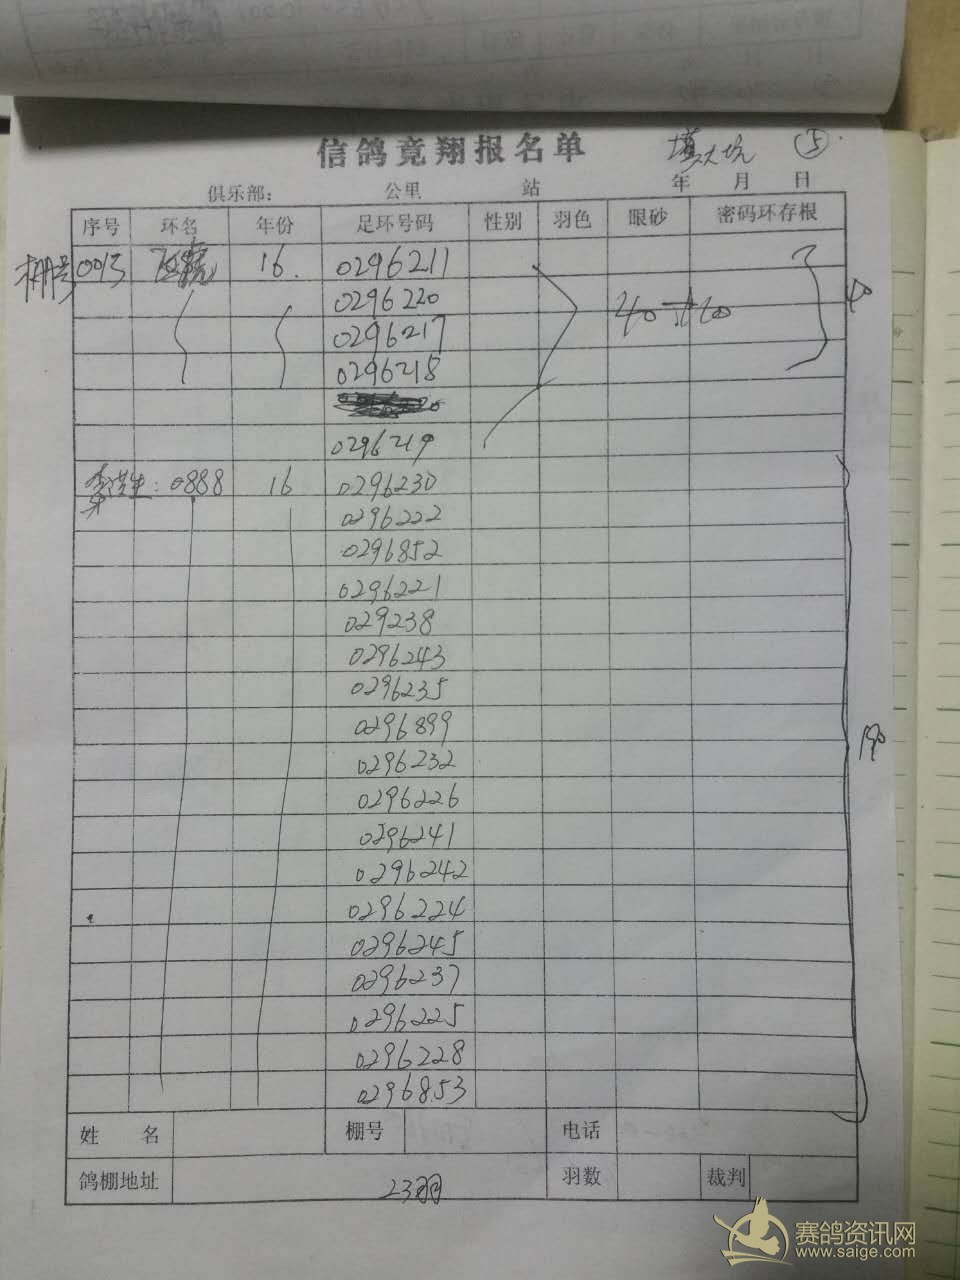 信鸽竟翔报名单 大坑 ⑤
俱乐部： 公里 站 年 月 日
序号 环名 年份 足环号码 性别 羽色 眼砂 密码环存根
棚号 0013 16. 0296211
0296220 40
0296217
0296218
0296219
0888 16 0296230
0296222
0296852
0296221
029238
0296243
0296235
0296899
0296232 190
0296226
0296241
0296242
0296224
0296245
0296237
0296225
0296228
0296853
姓 名 棚号 电话
鸽棚地址 23羽 羽数 裁判
赛鸽资讯网
www.saige.com